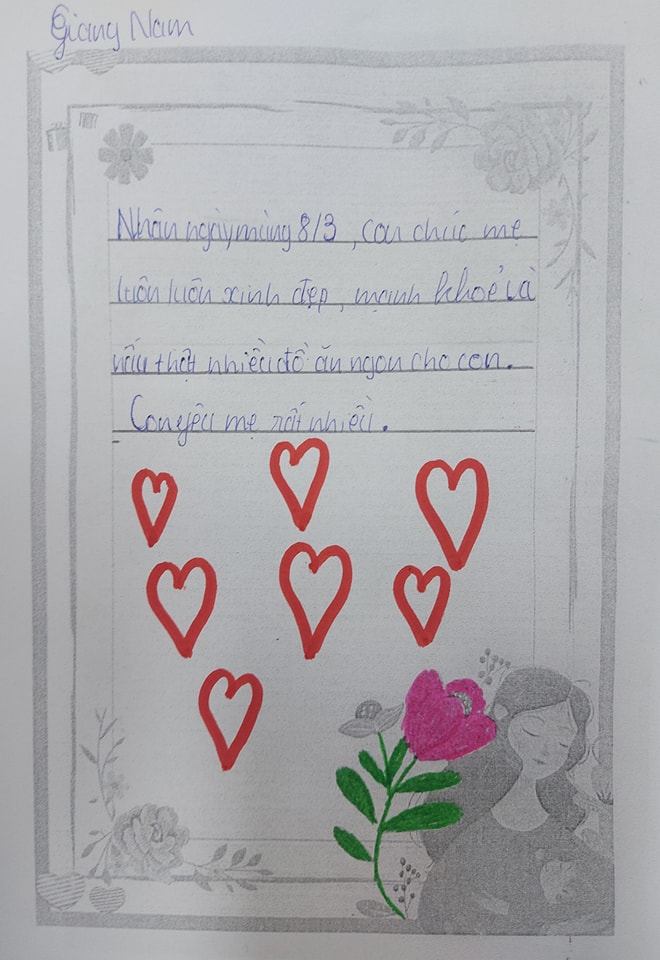 Giang Nam
Nhân ngày mùng 8/3, con chúc mẹ
luôn luôn xinh đẹp, mạnh khoẻ và
nấu thật nhiều đồ ăn ngon cho con.
Con yêu mẹ rất nhiều.